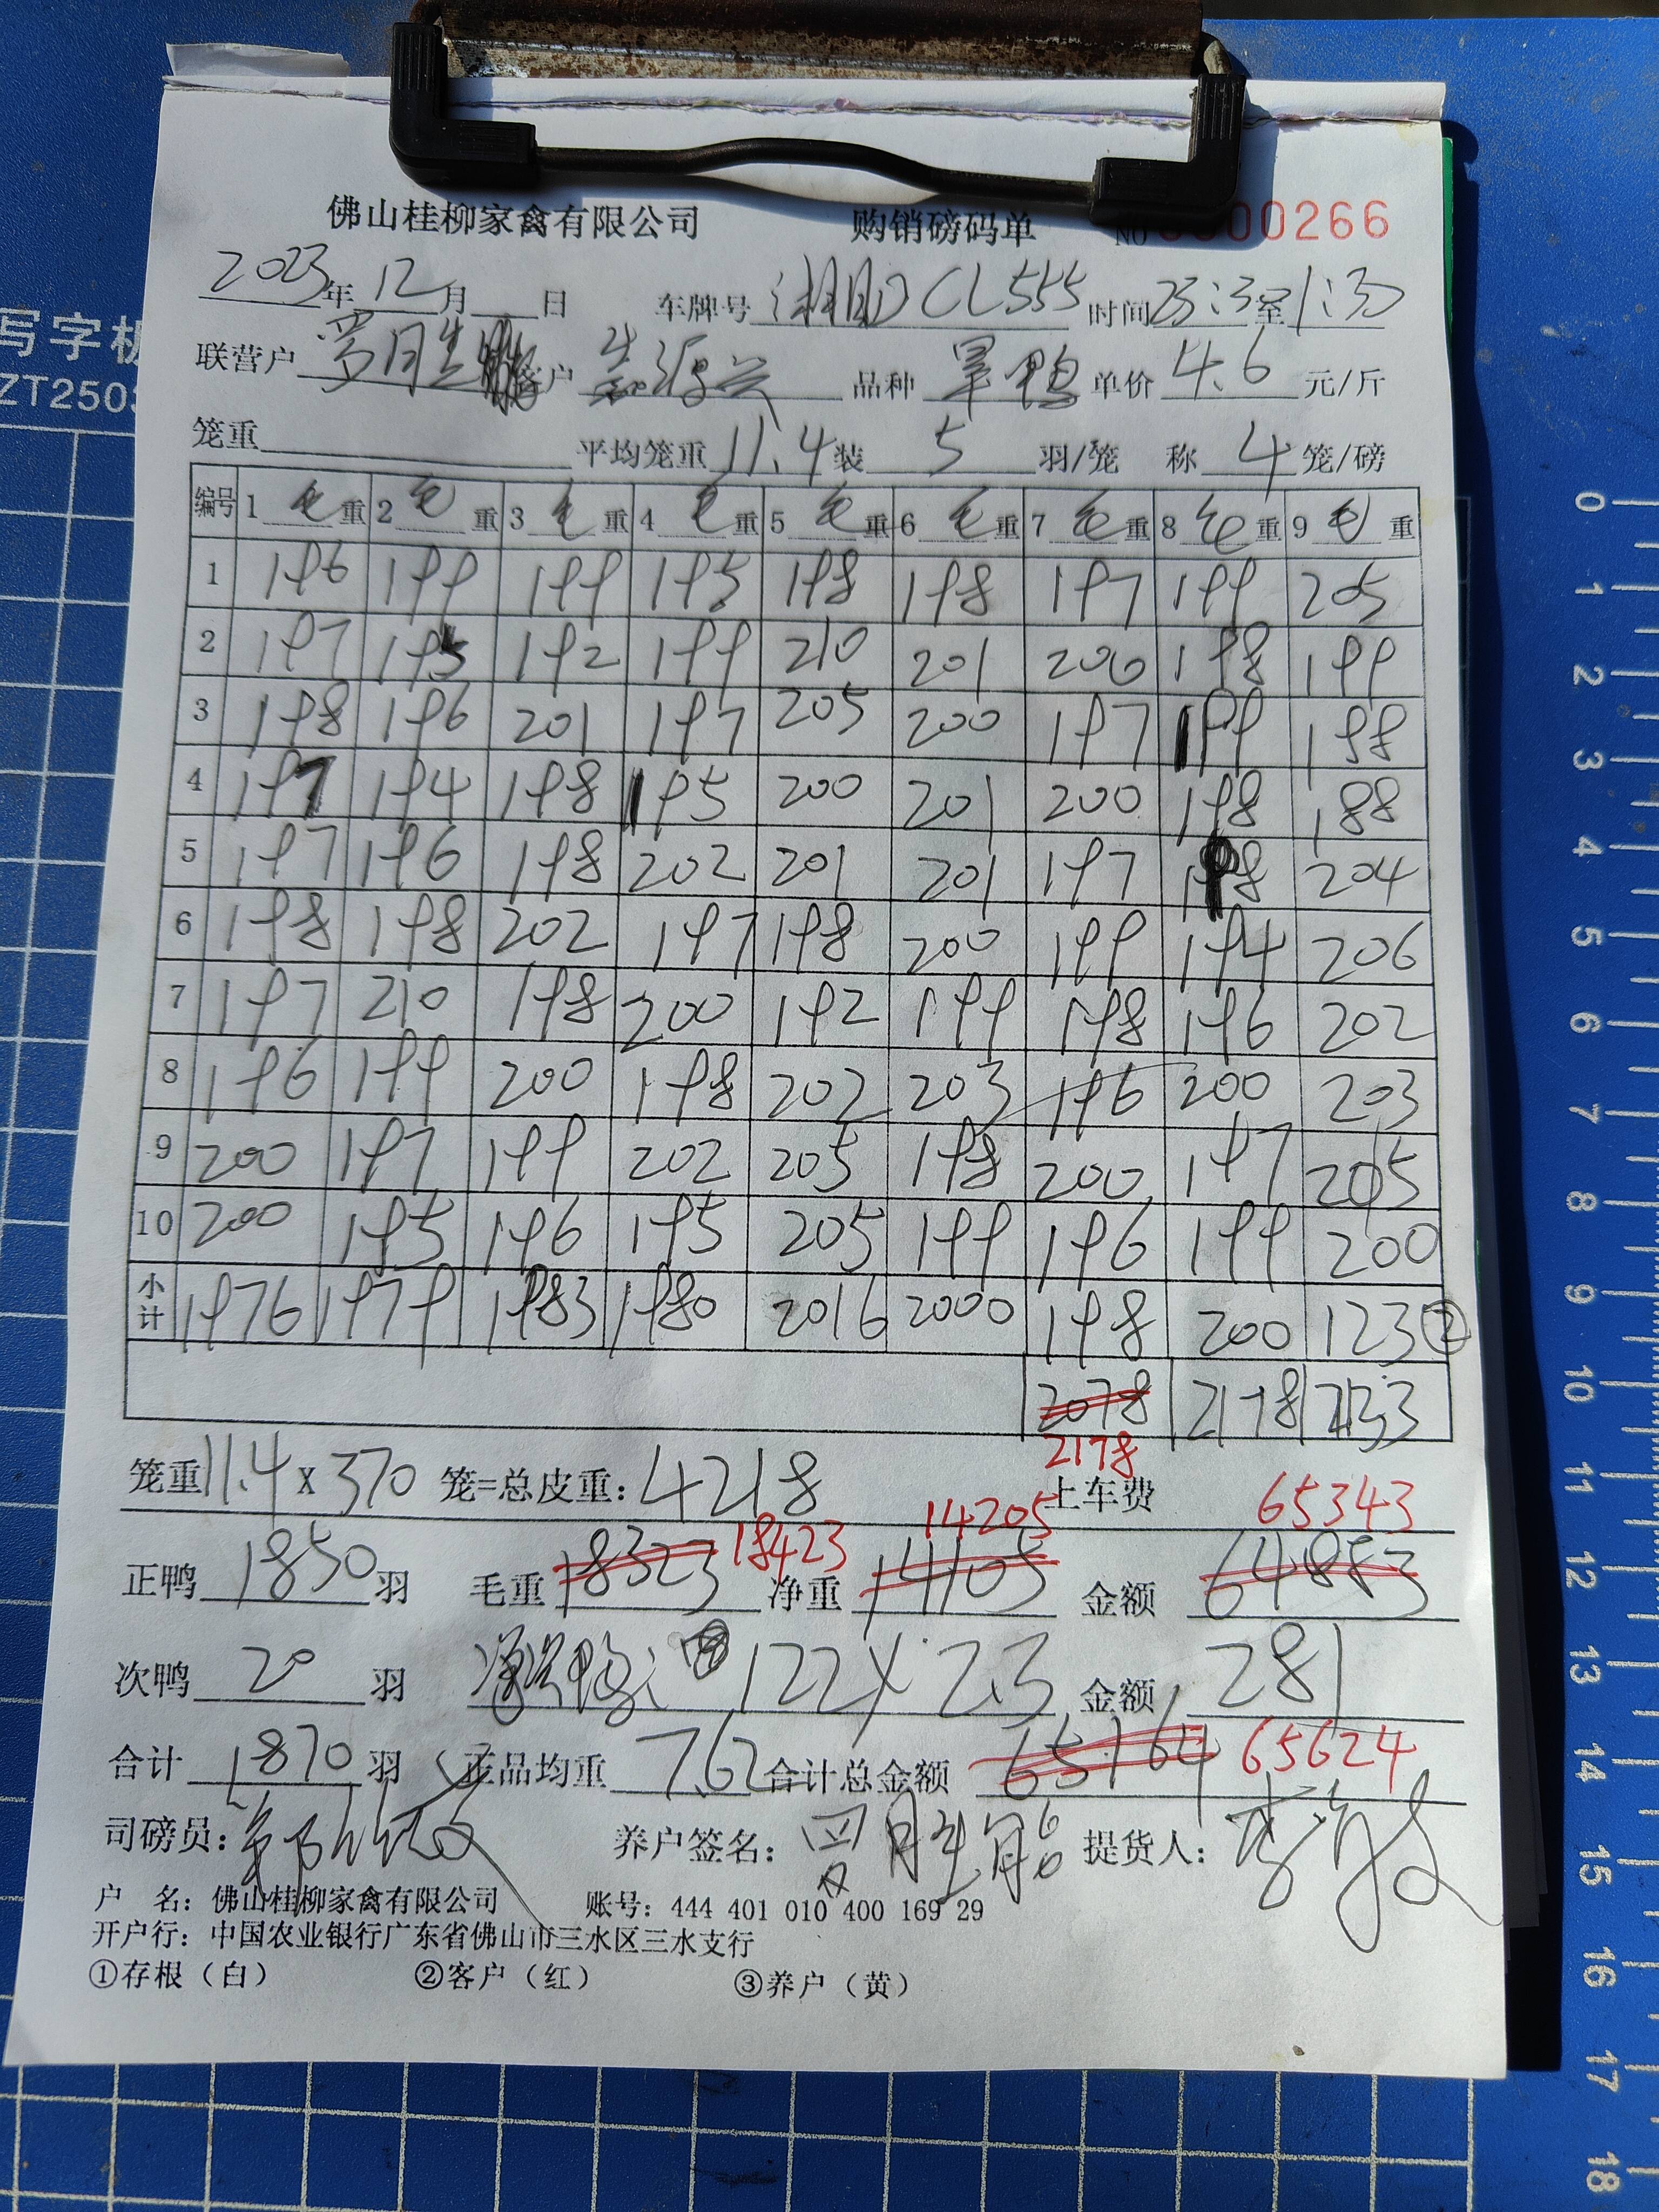 佛山桂柳家禽有限公司 购销磅码单 NO 0000266
2023年12月 日 车牌号 湘DCL555 时间23:30至1:30
联营户 罗胜能 客户 品种 单价4.6元/斤
笼重 平均笼重11.4装5羽/笼 称4笼/磅
编号 1毛重 2毛重 3毛重 4毛重 5毛重 6毛重 7毛重 8毛重 9毛重
1 196 199 199 195 198 198 197 199 205
2 197 195 192 199 210 201 200 198 199
3 198 196 201 197 205 200 197 199 198
4 197 194 198 195 200 201 200 198 188
5 197 196 198 202 201 201 197 198 204
6 198 198 202 197 198 200 199 194 206
7 197 210 198 200 192 199 198 196 202
8 196 199 200 198 202 203 196 200 203
9 200 197 199 202 205 198 200 197 205
10 200 195 196 195 205 199 196 199 200
小计 1976 1979 1983 1980 2016 2000 198 200 123②
2078 2178 2133
2178
笼重11.4x370笼=总皮重:4218 上车费
18423 14205 65343
正鸭1850羽 毛重18323 净重14105 金额64883
次鸭20羽 122X2.3 金额281
合计1870羽 正品均重7.62 合计总金额65164 65624
司磅员: 养户签名:罗胜能 提货人:
户 名:佛山桂柳家禽有限公司 账号:444 401 010 400 169 29
开户行:中国农业银行广东省佛山市三水区三水支行
①存根(白) ②客户(红) ③养户(黄)
写字板
0
1
2
3
4
5
6
7
8
9
10
11
12
13
14
15
16
17
18